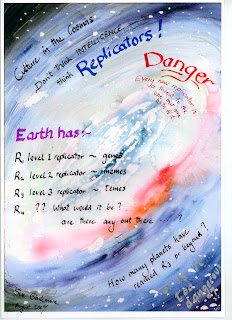 Culture in the Cosmos
Don't think INTELLIGENCE
think Replicators!
Danger
Every new replicator is
Earth has:~
R₁ level 1 replicator ~ genes
R₂ level 2 replicator ~ memes
R₃ level 3 replicator ~ temes
R₄ ?? What would it be?
are there any out there ... ?
How many planets have
reached R₃ or beyond?
Sue Blackmore